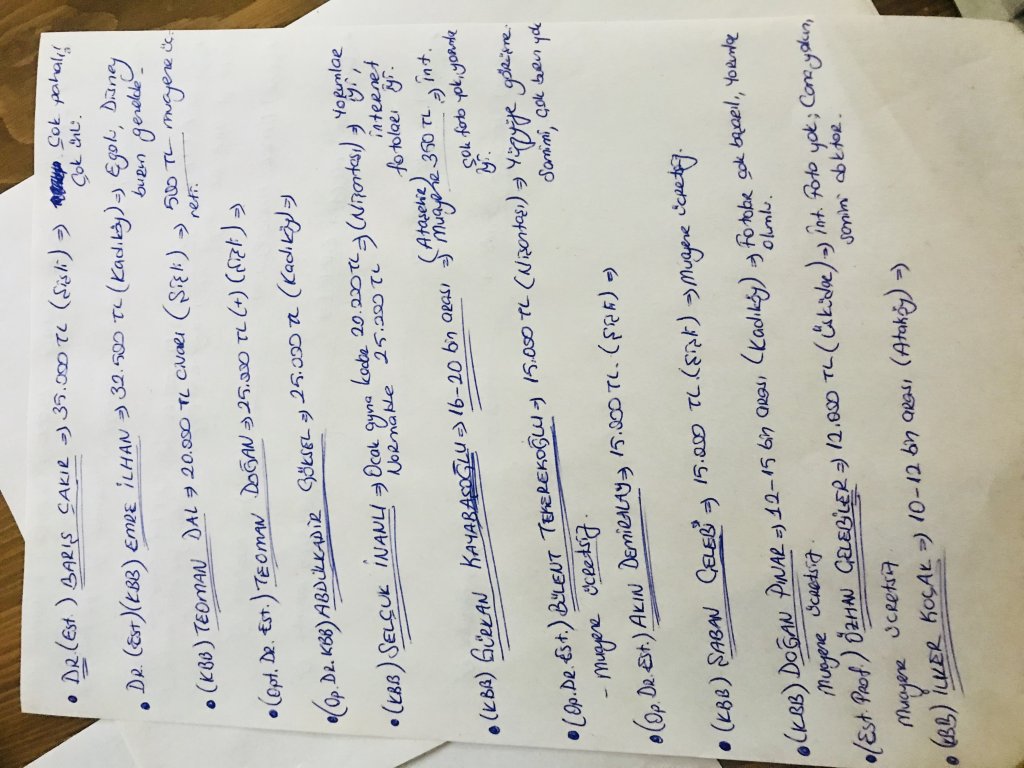 • DR.(Est.) BARIŞ ÇAKIR => 35.000 TL (Şişli) => Çok pahalı,
Çok ünlü.
• DR.(Est)(KBB) EMRE İLHAN => 32.500 TL (Kadıköy) => Egolu, Disney
burun genelde
• (KBB) TEOMAN DAL => 20.000 TL civarı (Şişli) => 500 TL muayene üc-
reti.
• (Opt. Dr. Est.) TEOMAN DOĞAN => 25.000 TL (+) (Şişli) =>
• (Op. Dr. KBB) ABDÜLKADİR GÖKSEL => 25.000 TL (Kadıköy) =>
• (KBB) SELÇUK İNANLI => Ocak ayına kadar 20.000 TL => (Nişantaşı) => Yorumlar
iyi,
Normalde 25.000 TL =>
internet
fotoları iyi.
• (KBB) GÜRKAN KAYABAŞOĞLU => 16-20 bin arası => (Ataşehir)
Muayene 350 TL => İnt.
çok foto yok, yorumlar
iyi.
• (Op. Dr. Est.) BÜLENT TEKEREKOĞLU => 15.000 TL (Nişantaşı) => Yüzyüze görüşme.
- Muayene ücretsiz.
Samimi, çok burun yok
• (Op. Dr. Est.) AKIN DEMİRALAY => 15.000 TL. (Şişli) =>
• (KBB) ŞABAN ÇELEBİ => 15.000 TL. (Şişli) => Muayene ücretsiz.
• (KBB) DOĞAN PINAR => 12-15 bin arası (Kadıköy) => Fotolar çok başarılı, yorumlar
muayene ücretsiz.
olumlu.
• (Est Prof.) ÖZHAN ÇELEBİLER => 12.000 TL (Üsküdar) => İnt. Foto yok; Cana yakın,
muayene ücretsiz
samimi doktor.
• (KBB) İLKER KOÇAK => 10-12 bin arası (Ataköy) =>